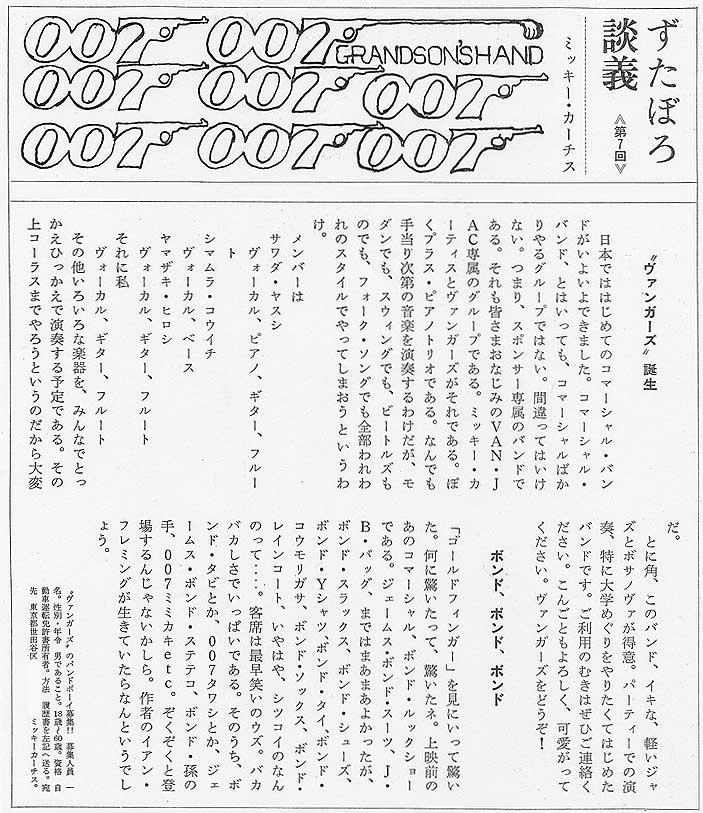 ずたぼろ
談義
《第7回》
ミッキー・カーチス
007 007
GRANDSON'S HAND
007 007 007
007 007 007
〝ヴァンガーズ〟誕生
日本でははじめてのコマーシャル・バン
ドがいよいよできました。コマーシャル・
バンド、とはいっても、コマーシャルばか
りやるグループではない。間違ってはいけ
ない。つまり、スポンサー専属のバンドで
ある。それも皆さまおなじみのVAN・J
AC専属のグループである。ミッキー・カ
ーティスとヴァンガーズがそれである。ぼ
くプラス・ピアノトリオである。なんでも
手当り次第の音楽を演奏するわけだが、モ
ダンでも、スウィングでも、ビートルズも
のでも、フォーク・ソングでも全部われわ
れのスタイルでやってしまおうというわ
け。
メンバーは
サワダ・ヤスシ
ヴォーカル、ピアノ、ギター、フルー
ト
シマムラ・コウイチ
ヴォーカル、ベース
ヤマザキ・ヒロシ
ヴォーカル、ギター、フルート
それに私
ヴォーカル、ギター、フルート
その他いろいろな楽器を、みんなでとっ
かえひっかえで演奏する予定である。その
上コーラスまでやろうというのだから大変
だ。
とに角、このバンド、イキな、軽いジャ
ズとボサノヴァが得意。パーティーでの演
奏、特に大学めぐりをやりたくてはじめた
バンドです。ご利用のむきはぜひご連絡く
ださい。こんごともよろしく、可愛がって
ください。ヴァンガーズをどうぞ！
ボンド、ボンド、ボンド
「ゴールドフィンガー」を見にいって驚い
た。何に驚いたって、驚いたネ。上映前の
あのコマーシャル、ボンド・ルックショー
である。ジェームス・ボンド・スーツ、J・
B・バッグ、まではまあまあよかったが、
ボンド・スラックス、ボンド・シューズ、
ボンド・Yシャツ、ボンド・タイ、ボンド・
コウモリガサ、ボンド・ソックス、ボンド・
レインコート、いやはや、シツコイのなん
のって…。客席は最早笑いのウズ。バカ
バカしさでいっぱいである。そのうち、ボ
ンド・タビとか、007タワシとか、ジェ
ームス・ボンド・ステテコ、ボンド・孫の
手、007ミミカキetc。ぞくぞくと登
場するんじゃないかしら。作者のイアン・
フレミングが生きていたらなんというでし
ょう。
〝ヴァンガーズ〟のバンドボーイ募集!!　募集人員　一
名。性別・年令　男であること。18歳〜60歳。資格　自
動車運転免許書所有者。方法　履歴書を左記へ送る。宛
先　東京都世田谷区
ミッキーカーチス。